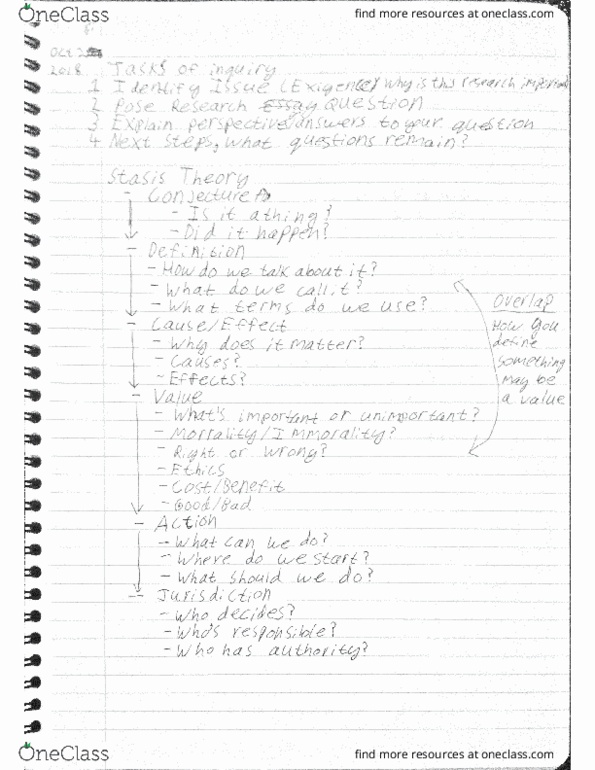 OneClass
find more resources at oneclass.com
Oct 2
2018 Tasks of inquiry
1 Identify Issue (Exigence) Why is this research important
2 Pose Research Essay Question
3 Explain perspective/answers to your question
4 Next Steps, what questions remain?
Stasis Theory
- Conjecture
- Is it a thing?
- Did it happen?
- Definition
- How do we talk about it?
- What do we call it?
- What terms do we use?
- Cause/Effect
- Why does it matter?
- Causes?
- Effects?
- Value
- What's important or unimportant?
- Mortality/Immorality?
- Right or wrong?
- Ethics
- Cost/Benefit
- Good/Bad
- Action
- What can we do?
- Where do we start?
- What should we do?
- Jurisdiction
- Who decides?
- Who's responsible?
- Who has authority?
Overlap
How you
define
something
may be
a value
OneClass
find more resources at oneclass.com